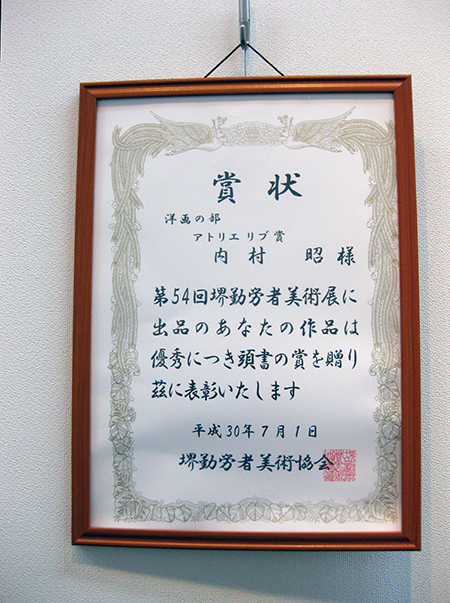 賞状
洋画の部
アトリエ リブ賞
内村 昭 様
第54回堺勤労者美術展に
出品のあなたの作品は
優秀につき頭書の賞を贈り
茲に表彰いたします
平成30年7月1日
堺勤労者美術協会